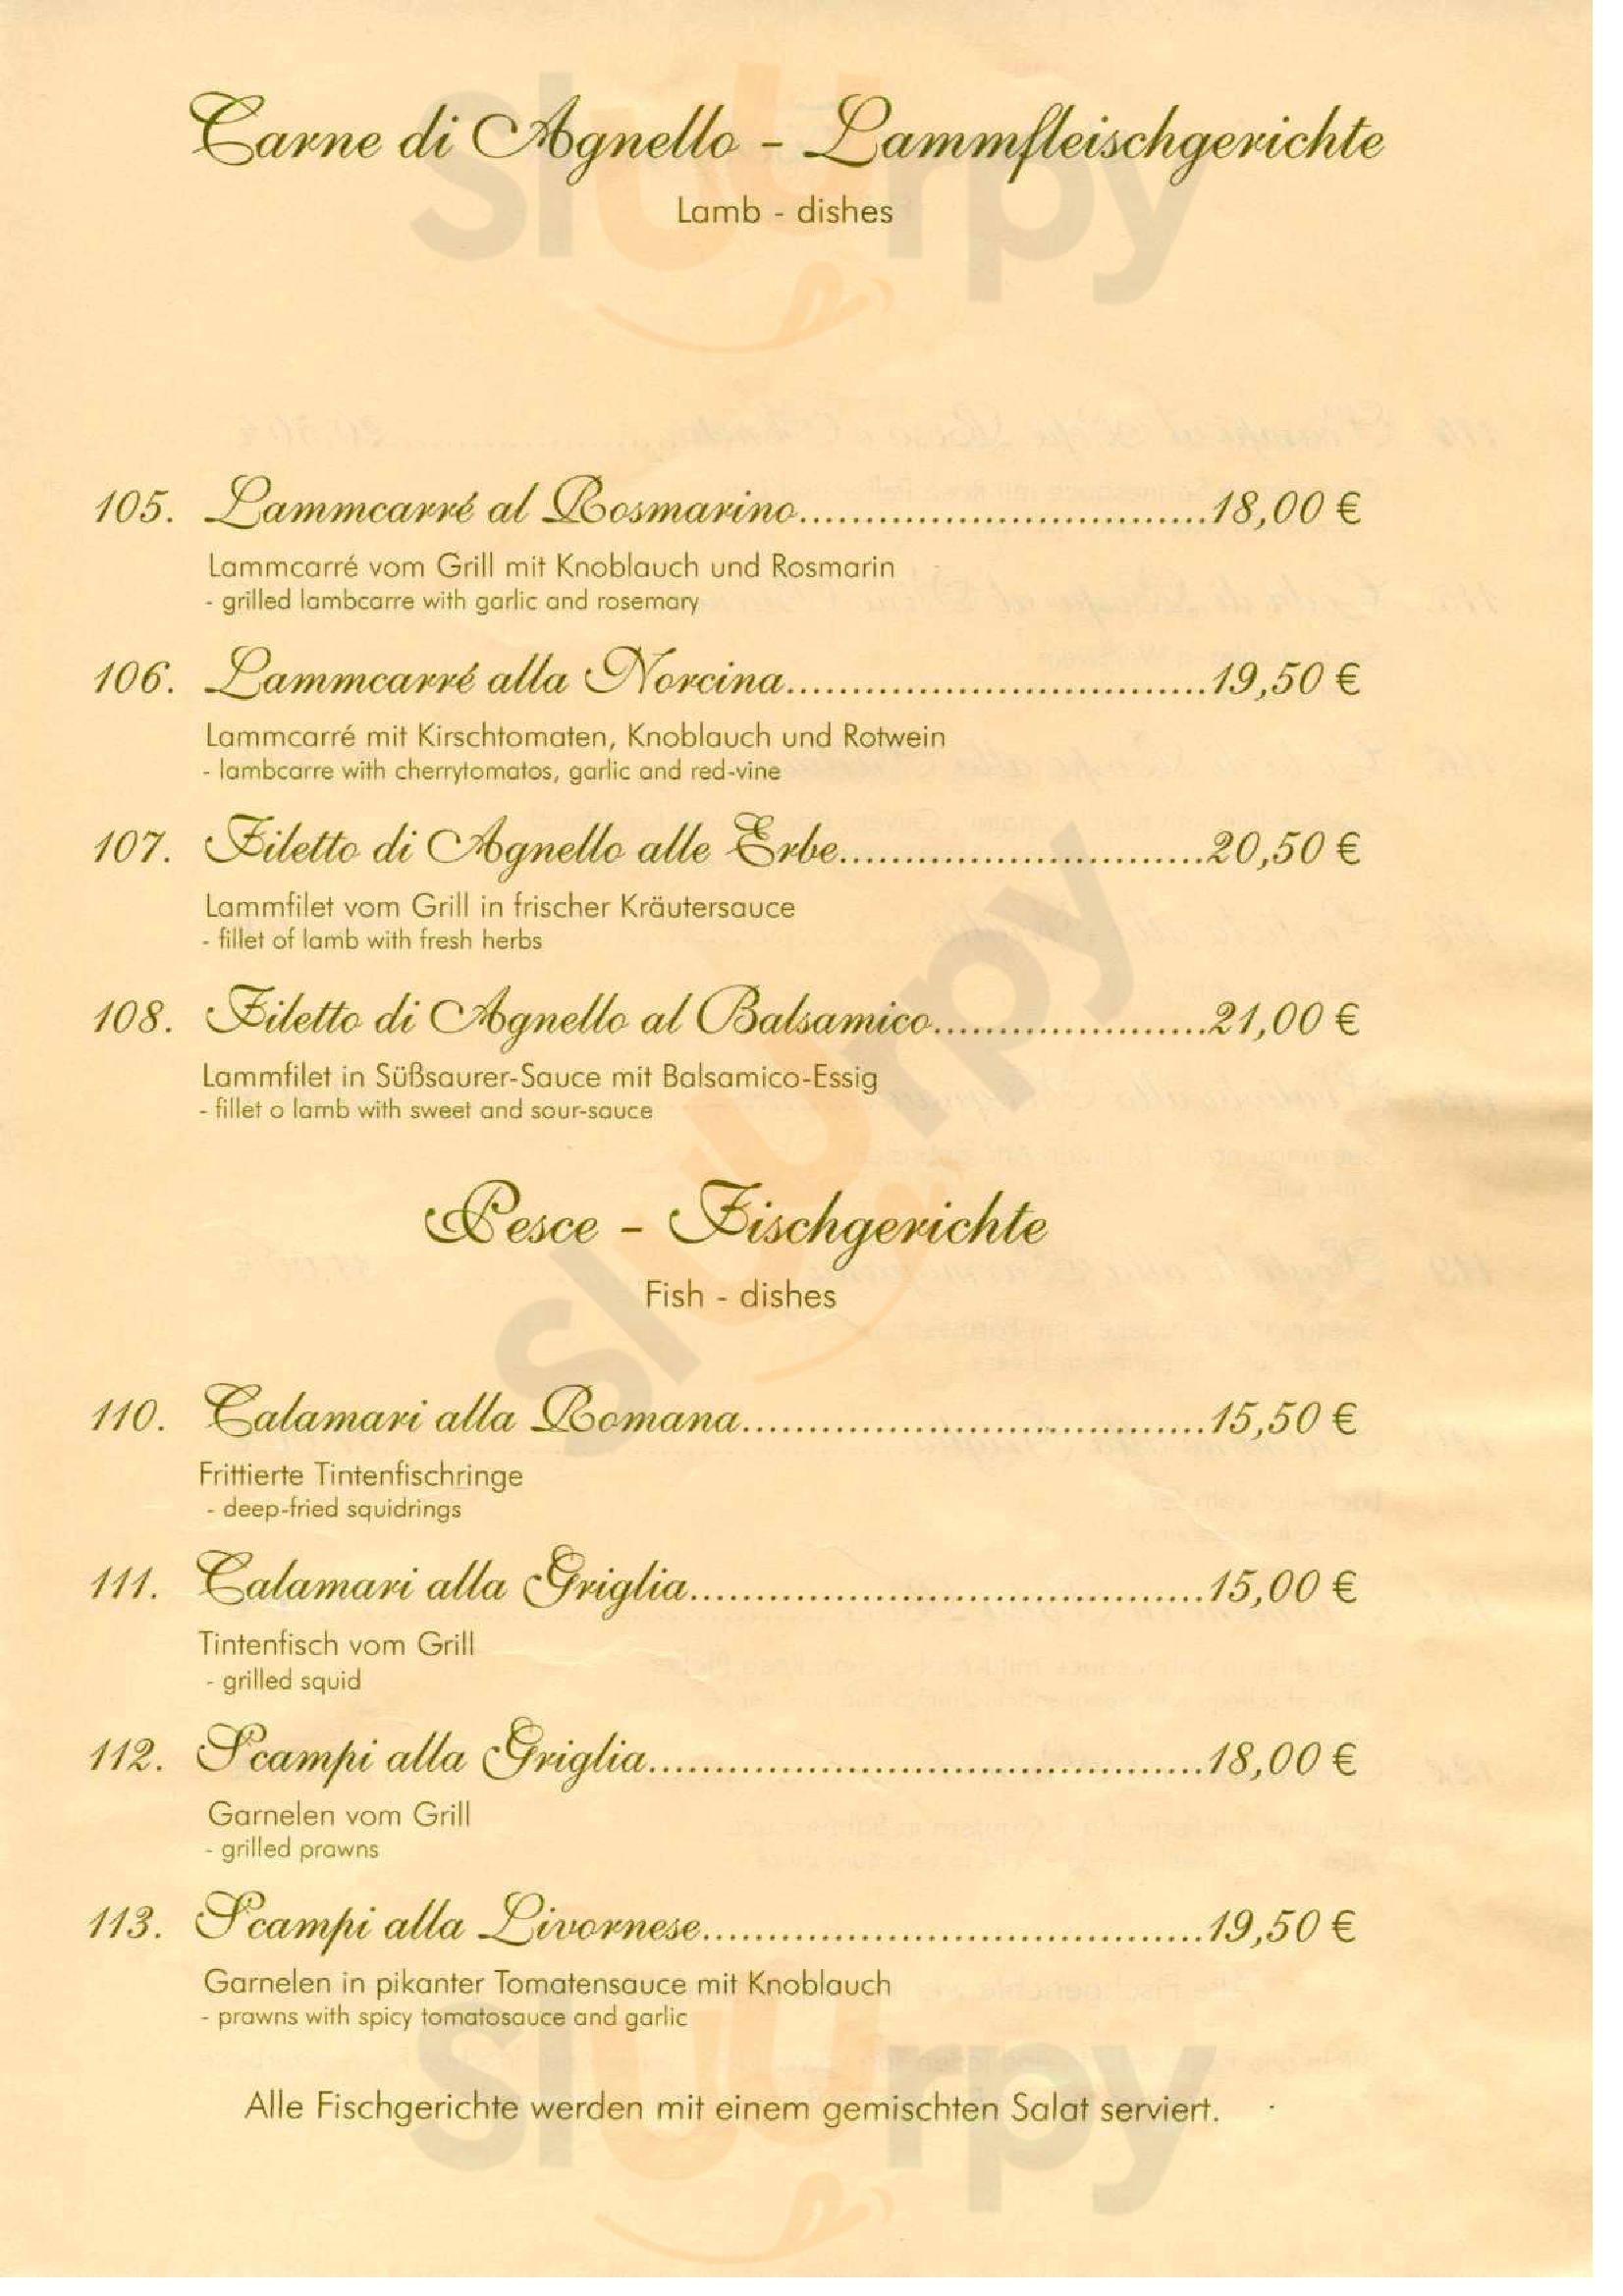 Carne di Agnello - Lammfleischgerichte
Lamb - dishes
105. Lammcarré al Rosmarino...............................18,00 €
Lammcarré vom Grill mit Knoblauch und Rosmarin
- grilled lambcarre with garlic and rosemary
106. Lammcarré alla Norcina................................19,50 €
Lammcarré mit Kirschtomaten, Knoblauch und Rotwein
- lambcarre with cherrytomatos, garlic and red-vine
107. Filetto di Agnello alle Erbe............................20,50 €
Lammfilet vom Grill in frischer Kräutersauce
- fillet of lamb with fresh herbs
108. Filetto di Agnello al Balsamico.....................21,00 €
Lammfilet in Süßsaurer-Sauce mit Balsamico-Essig
- fillet o lamb with sweet and sour-sauce
Pesce - Fischgerichte
Fish - dishes
110. Calamari alla Romana...................................15,50 €
Frittierte Tintenfischringe
- deep-fried squidrings
111. Calamari alla Griglia.......................................15,00 €
Tintenfisch vom Grill
- grilled squid
112. Scampi alla Griglia..........................................18,00 €
Garnelen vom Grill
- grilled prawns
113. Scampi alla Livornese......................................19,50 €
Garnelen in pikanter Tomatensauce mit Knoblauch
- prawns with spicy tomatosauce and garlic
Alle Fischgerichte werden mit einem gemischten Salat serviert.
sluurpy
sluurpy
sluurpy